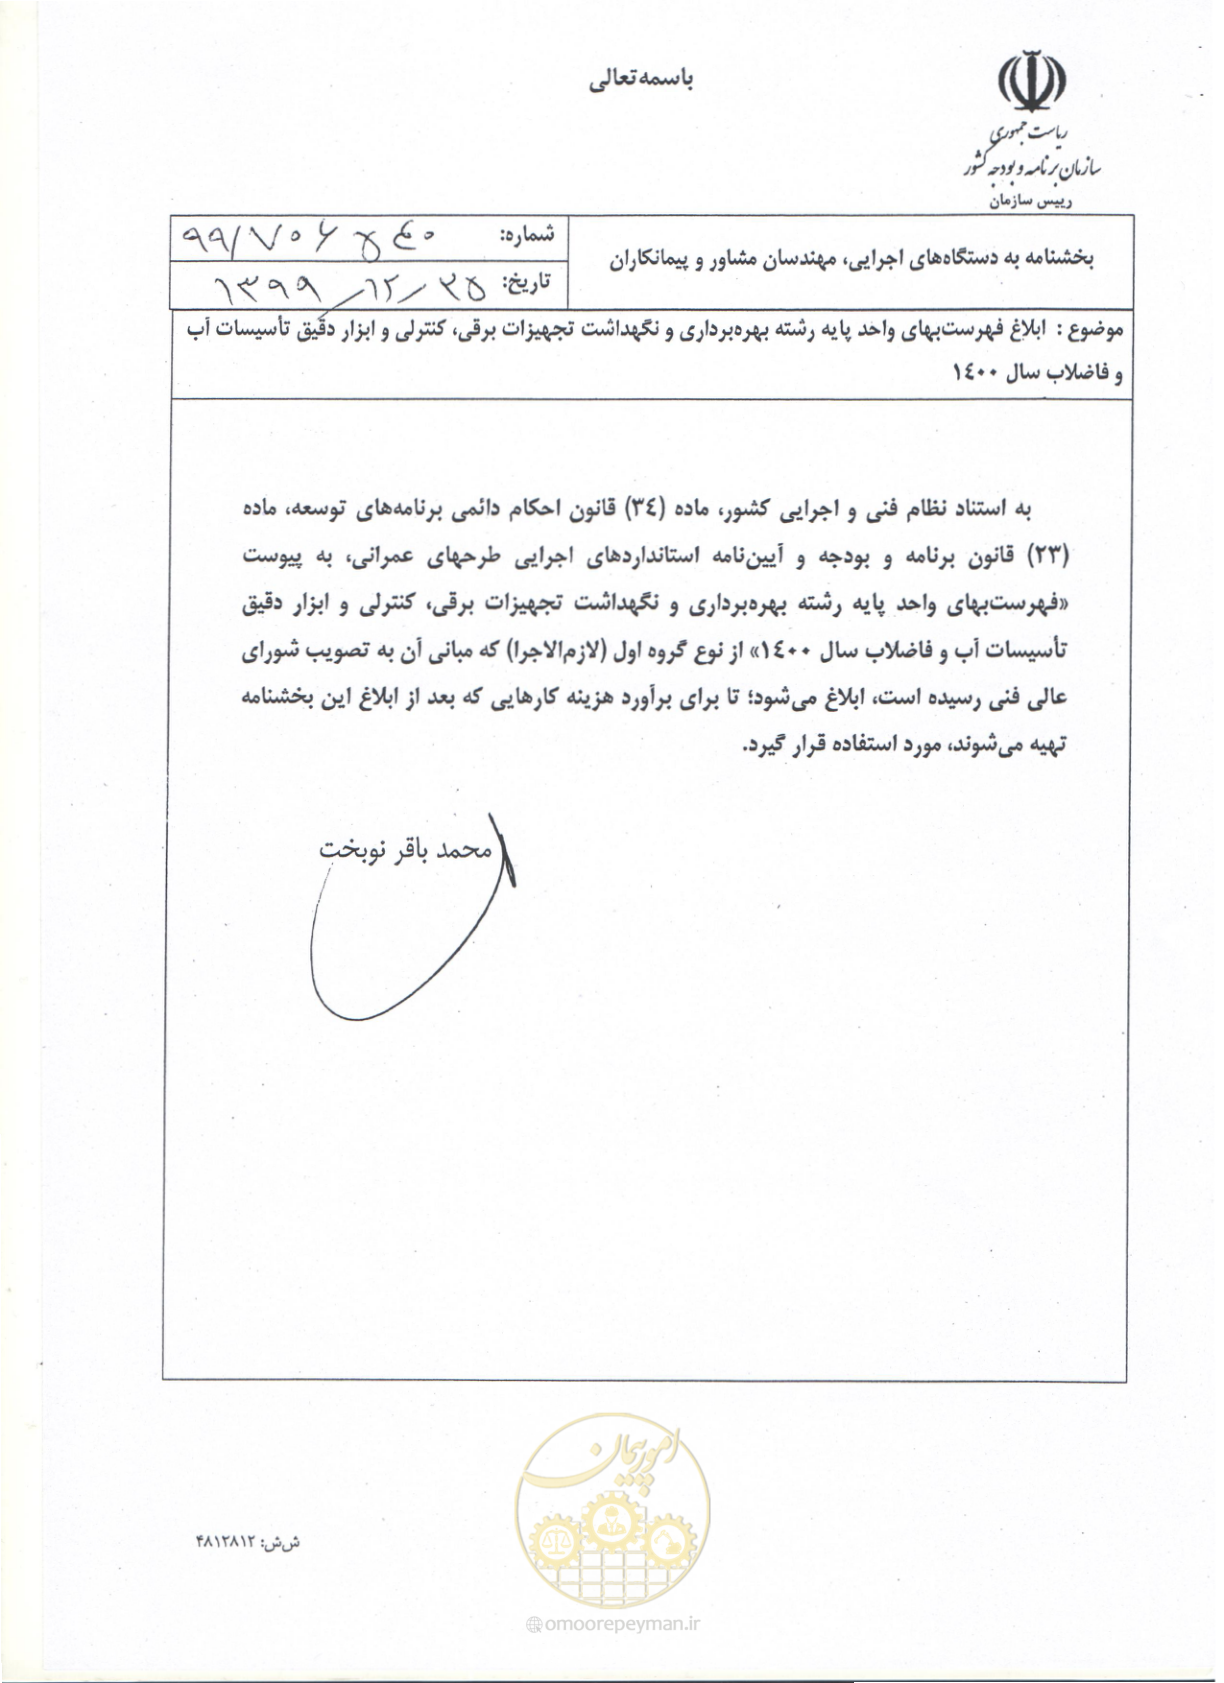 باسمه‌تعالی
ریاست جمهوری
سازمان برنامه و بودجه کشور
رییس سازمان
بخشنامه به دستگاه‌های اجرایی، مهندسان مشاور و پیمانکاران
شماره: ۹۹/۷۰۶۵۴۰
تاریخ: ۱۳۹۹/۱۲/۲۵
موضوع : ابلاغ فهرست‌بهای واحد پایه رشته بهره‌برداری و نگهداشت تجهیزات برقی، کنترلی و ابزار دقیق تأسیسات آب
و فاضلاب سال ۱۴۰۰
به استناد نظام فنی و اجرایی کشور، ماده (۳۴) قانون احکام دائمی برنامه‌های توسعه، ماده
(۲۳) قانون برنامه و بودجه و آیین‌نامه استانداردهای اجرایی طرحهای عمرانی، به پیوست
«فهرست‌بهای واحد پایه رشته بهره‌برداری و نگهداشت تجهیزات برقی، کنترلی و ابزار دقیق
تأسیسات آب و فاضلاب سال ۱۴۰۰» از نوع گروه اول (لازم‌الاجرا) که مبانی آن به تصویب شورای
عالی فنی رسیده است، ابلاغ می‌شود؛ تا برای برآورد هزینه کارهایی که بعد از ابلاغ این بخشنامه
تهیه می‌شوند، مورد استفاده قرار گیرد.
محمد باقر نوبخت
امور پیمان
ش‌ش: ۴۸۱۲۸۱۲
omoorepeyman.ir